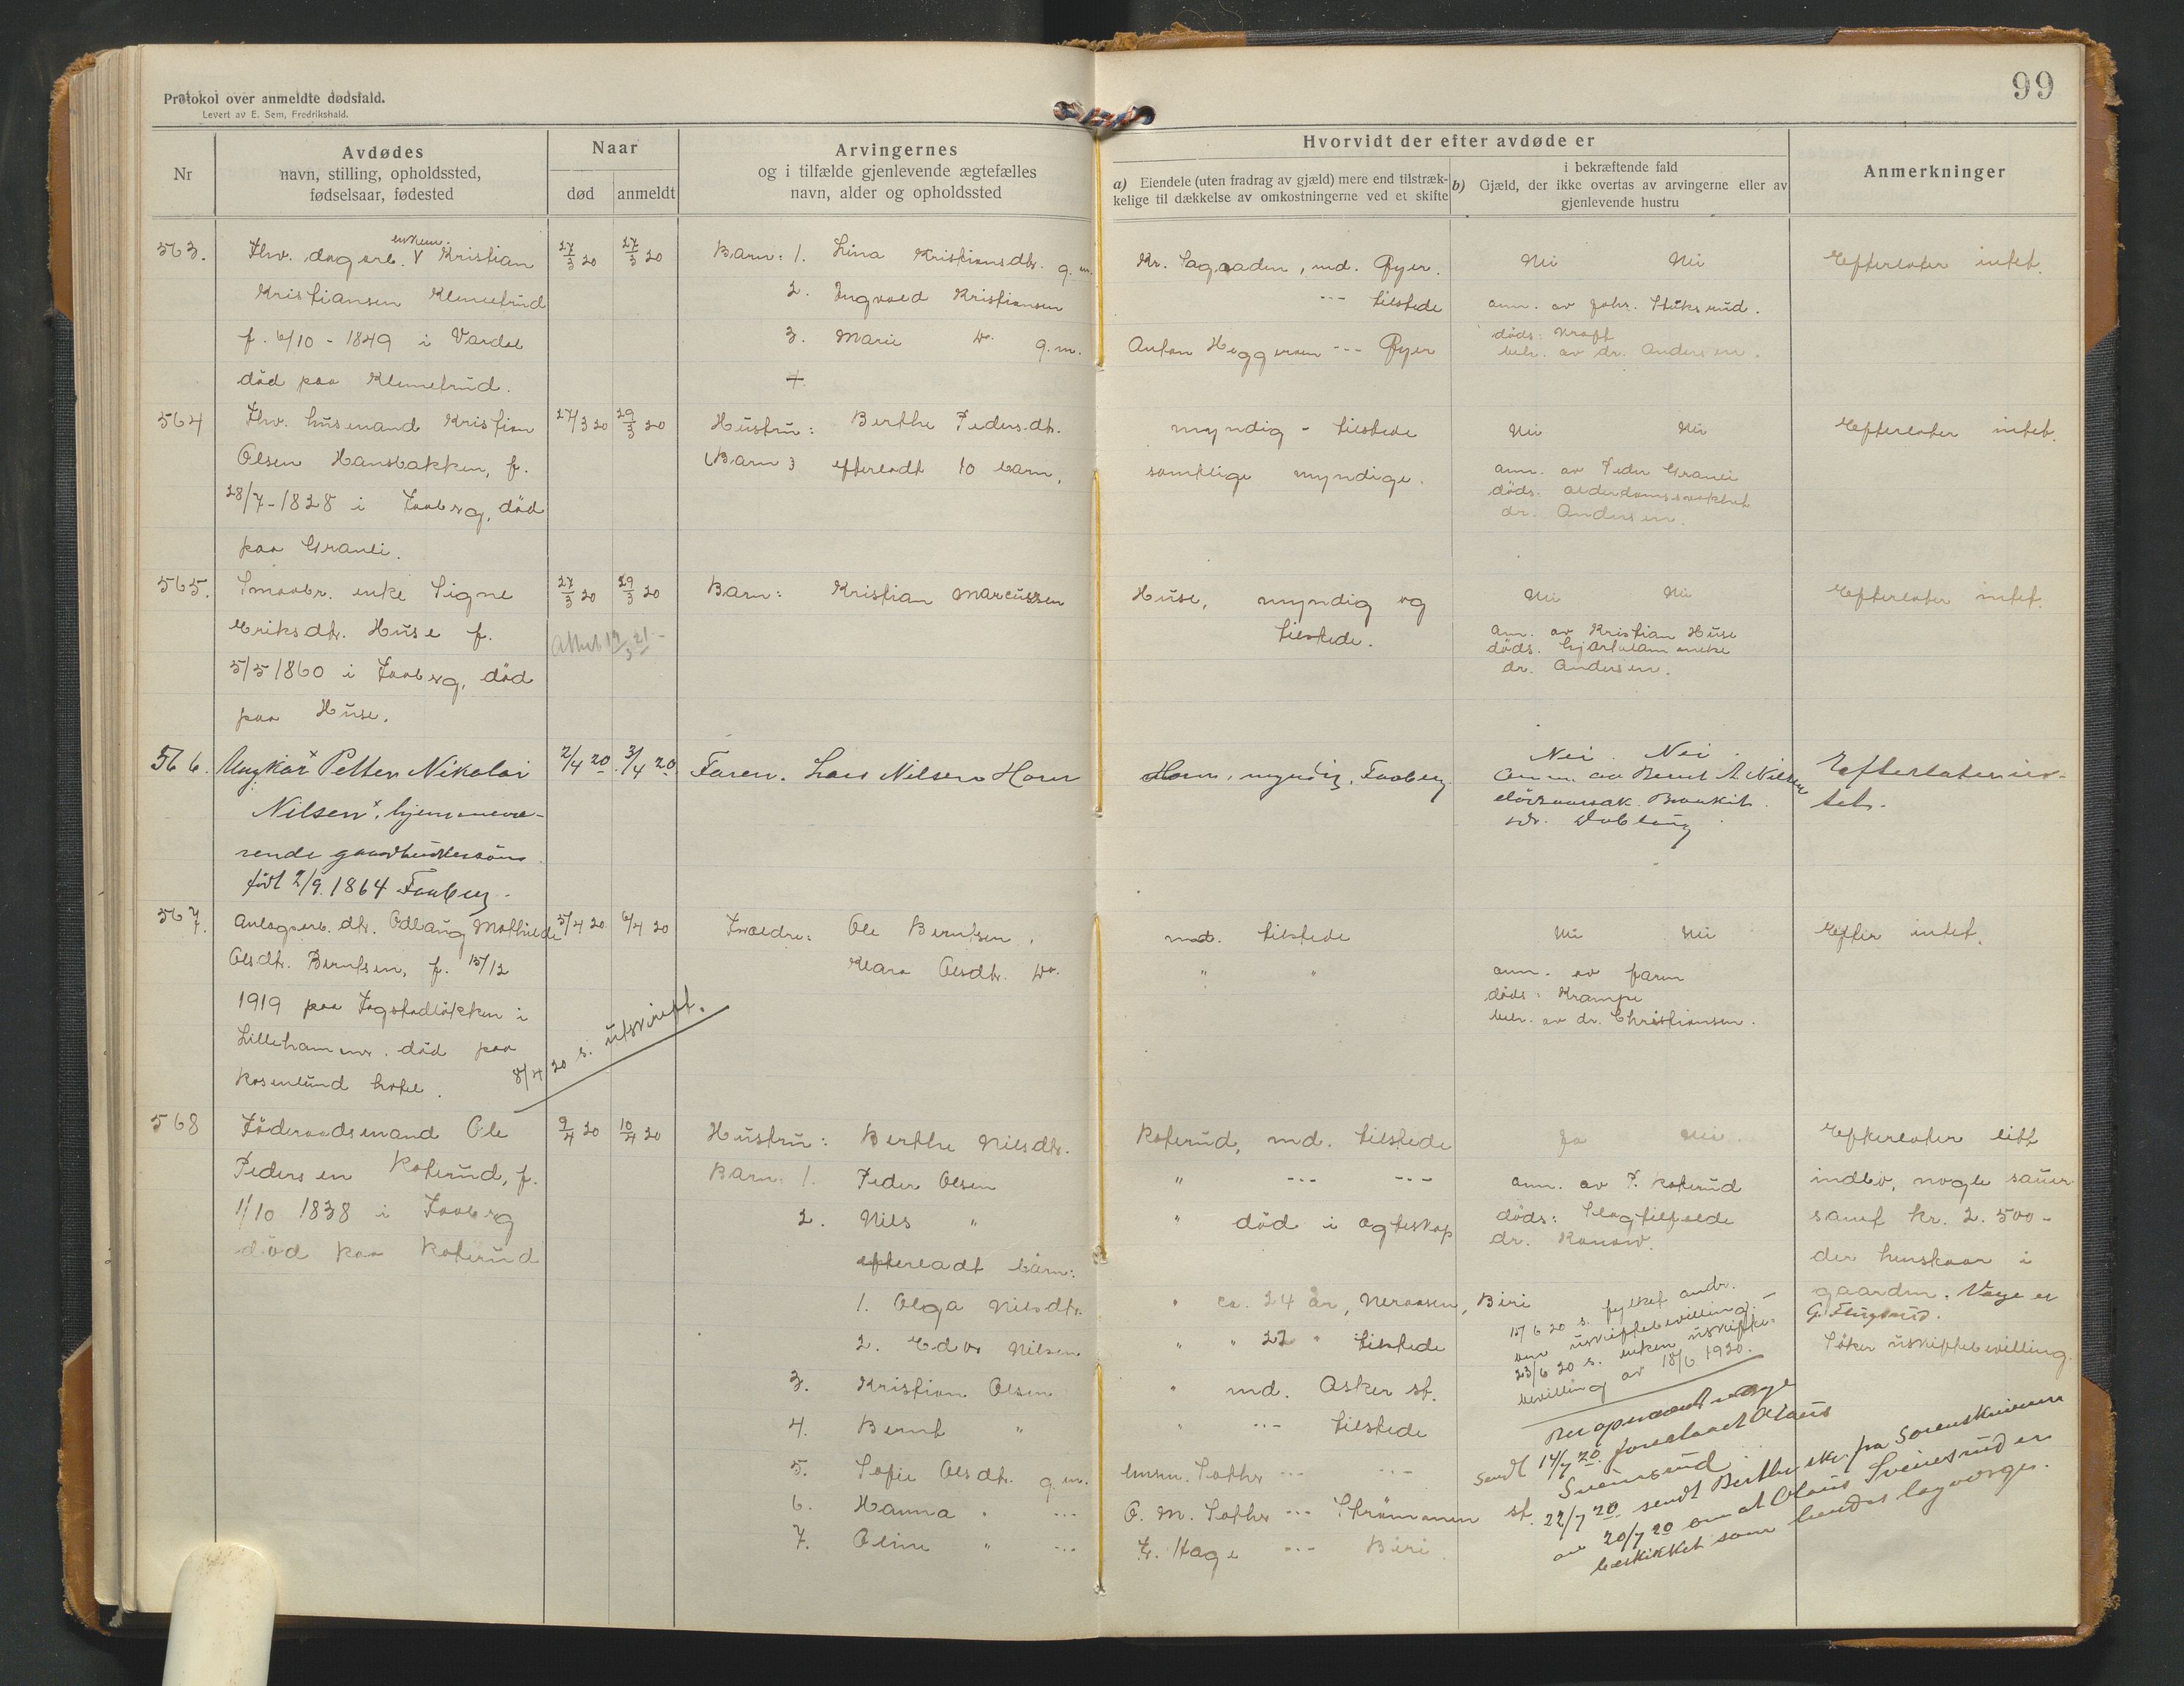 Protokol over anmeldte dødsfald.
Levert av E. Sem, Fredrikshald.
99
Nr
Avdødes
navn, stilling, opholdssted,
fødselsaar, fødested
Naar
død
anmeldt
Arvingernes
og i tilfælde gjenlevende ægtefælles
navn, alder og opholdssted
Hvorvidt der efter avdøde er
a) Eiendele (uten fradrag av gjæld) mere end tilstræk-
kelige til dækkelse av omkostningerne ved et skifte
i bekræftende fald
b) Gjæld, der ikke overtas av arvingerne eller av
gjenlevende hustru
Anmerkninger
563.
Fhv. dagarb. V enkem. Kristian
Kristiansen Klemetrud
f. 6/10 - 1849 i Vardal
død paa Klemetrud.
27/3 20
27/3 20
Barn: 1. Lina Kristiansdtr. g.m.
2. Ingvald Kristiansen
3. Marie Do. g.m.
4.
Kr. Sagaaden, md. Øyer.
--- tilstede
Anton Heggeroen --- Øyer
Nei Nei
anm. av Johs. Stuksrud.
døds: Kræft
beh. av dr. Andersen.
Efterlater intet.
564
Fhv. husmand Kristian
Olsen Hansbakken, f.
28/7-1828 i Faaberg, død
paa Granli.
27/3 20
29/3 20
Hustru: Berthe Pedersdtr.
(Barn) efterladt 10 barn,
myndig - tilstede
samtlige myndige.
Nei Nei
anm. av Peder Granli
døds: alderdomssvakhet
dr. Andersen.
Efterlater intet.
565.
Smaabr. enke Signe
Eriksdtr. Huse f.
5/5 1860 i Faaberg, død
paa Huse.
27/3 20
29/3 20
Attest 19/3 21 -
Barn: Kristian Marcussen
Huse, myndig og
tilstede.
Nei Nei
Anm. av Kristian Huse
døds. hjertelammelse
dr. Andersen.
Efterlater intet.
566.
Ungkar x Petter Nikolai
Nilsen x, hjemmevæ-
rende gaardbrukersøn
født 2/9 1864 Faaberg.
2/4 20
3/4 20
Faren. Lars Nilsen Horn
Horn, myndig, Faaberg
Nei. Nei.
Anm. av Bernt A Nilsen
dødsaarsak. Bronkit.
dr. Dobloug
Efterlater in-
tet.
567.
Anlægsarb. dtr. Odlaug Mathilde
Olsdtr. Berntsen, f. 15/12
1919 paa Fagstadløkken i
Lillehammer, død paa
Rosenlund hotel.
5/4 20
6/4 20
8/4 20 s. utskrift.
Forældre: Ole Berntsen,
Klara Olsdtr. Do.
md. tilstede
" "
Nei Nei
anm. av faren
døds: Krampe
beh. av dr. Christiansen.
Efter intet.
568
Føderaadsmand Ole
Pedersen Roterud, f.
1/10 1838 i Faaberg
død paa Roterud
9/4 20
10/4 20
Hustru: Berthe Nilsdtr.
Barn: 1. Peder Olsen
2. Nils "
efterladt barn:
1. Olga Nilsdtr.
2. Edv. Nilsen
3. Kristian Olsen
4. Bernt "
5. Sofie Olsdtr. g.m.
6. Hanna " ---
7. Oline " ---
Roterud, md. tilstede
" --- ---
" død i ægteskap
" ca. 24 år, Neraasen, Biri
" " 22 " tilstede
" md. Asker st.
" --- tilstede
--- ---
O. M. Sother --- Strømmen st.
E. Hage --- Biri.
Ja Nei.
anm. av P. Roterud
døds: Slagtilfælde
dr. Konow.
15/6 20 s. fylket andr.
om uskiftebevilling. -
23/6 20 s. enken uskifte-
bevilling av 18/6 1920.
Sendt 14/7 20 foreslaaet Olaus
Sveinsrud.
22/7 20 sendt Berthe skr. fra Sorenskriveren
av 20/7 20 om at Olaus Sveinsrud er
beskikket som hendes lagverge.
Efterlater litt
indbo, nogle sauer
samt kr. 2.500 -
der henstaar i
gaarden. Verge er
Søker uskiftebevilling.